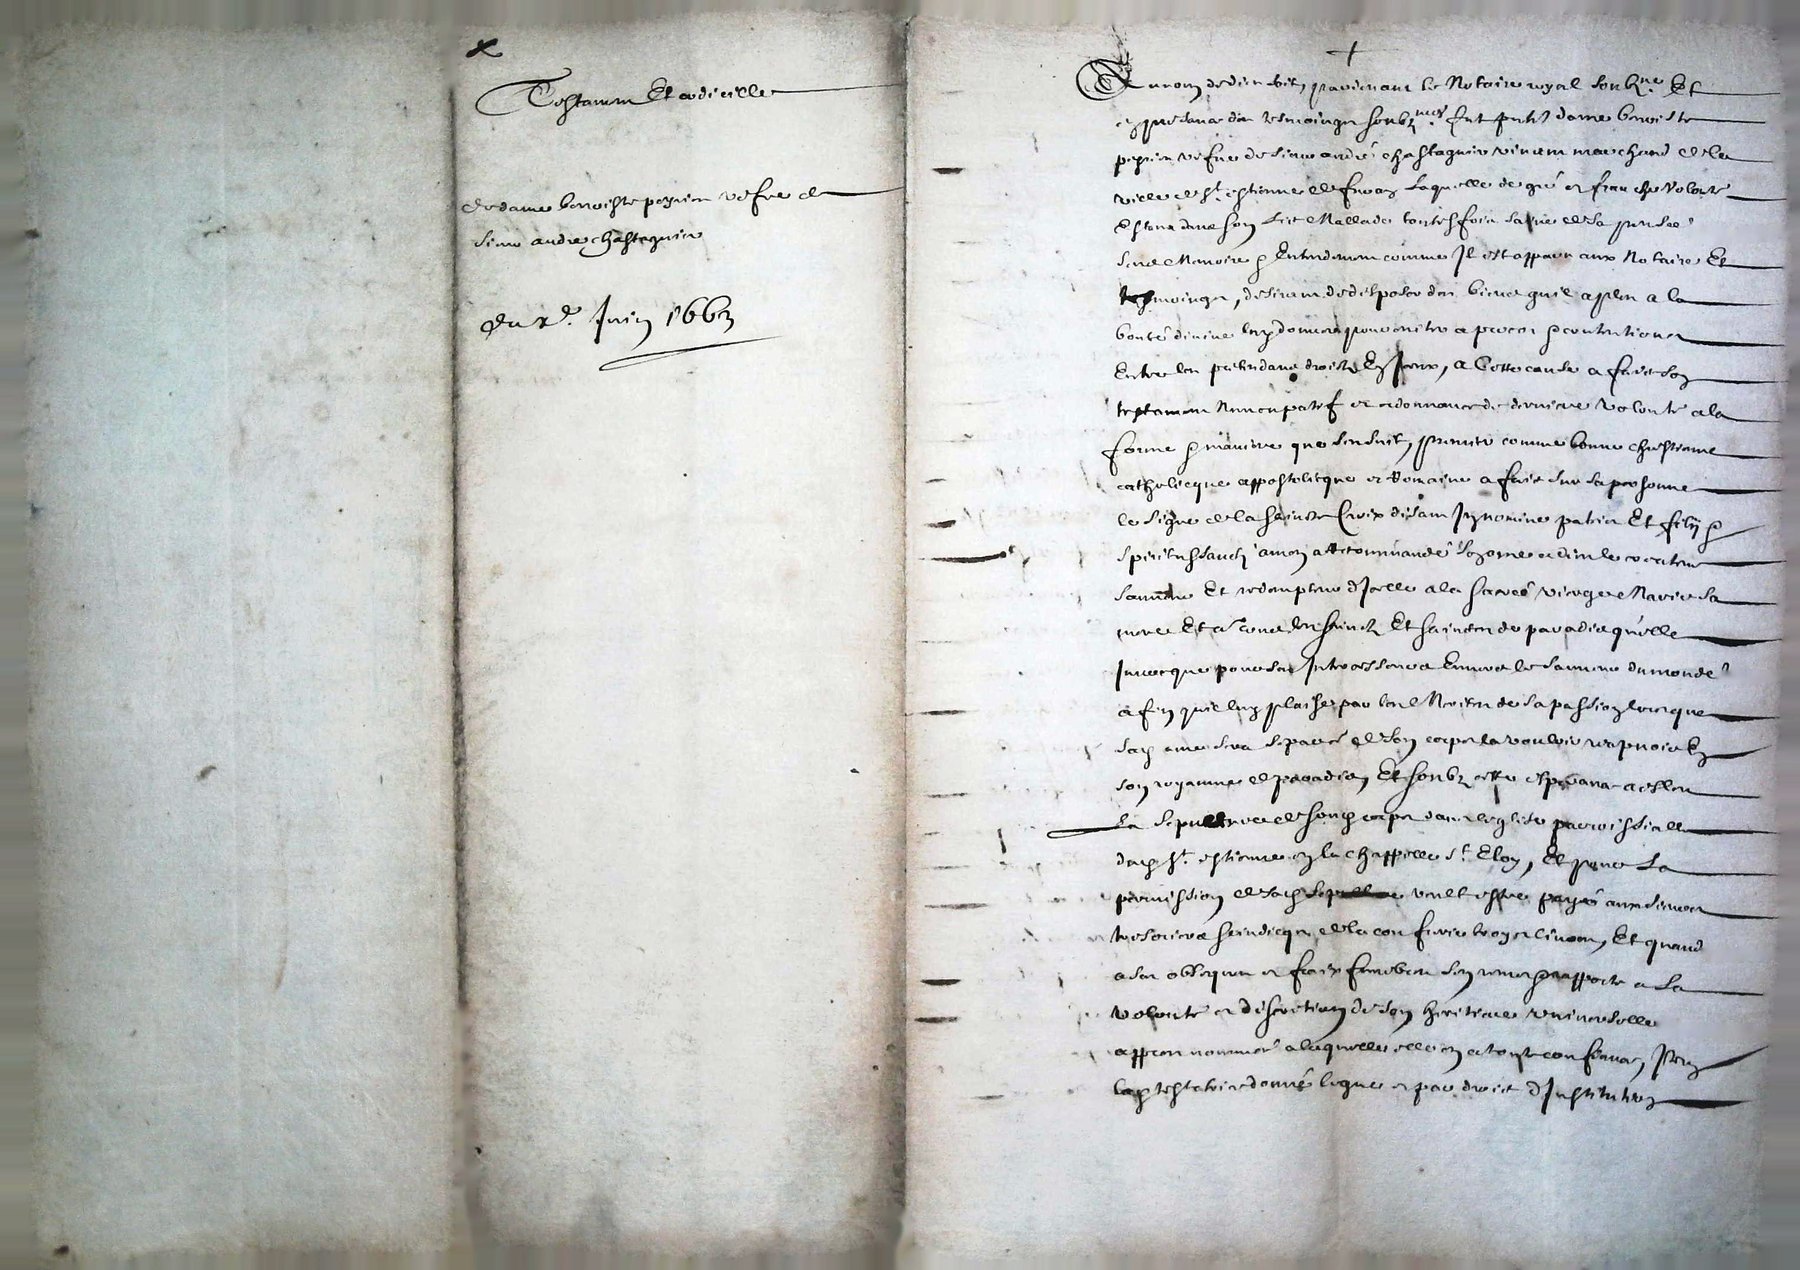 Testamen Et codicille
de dame benoiste peyrien vefve de
sieur andre chastagnier
Du x.e Juin 1663
Au nom de dieu soit, pardevant le Notaire royal soubz.ne Et
en presance des tesmoingz soubz.nes fut pnte dame benoiste
peyrien vefve de sieur andré chastagnier vivant marchand de la
ville de St estienne de furan Laquelle de gré et franche volonté
Estant dans son lict Mallade toutesfois saine de sa pensée
sens Memoire & Entendemen comme Il est apparu aux Notaire Et
tesmoingz, desirant de disposer des biens quil a pleu a la
bonté divine luy donner pour eviter a proces & contentions
Entre les pretendans droictz En Iceux, a Cette cause a faict son
testamen Nuncupatif et ordonnance de derniere volonté a la
forme & maniere que sensuit, premier comme bonne chrestienne
catholicque appostolicque et Romaine a faict sur sa personne
le signe de la saincte Croix disant In nomine patris Et filij &
spiritus sancti amen a Recommandé son ame a dieu le createur
sauveur Et redempteur d'Icelle a la sacrée vierge Marie sa
mere Et a tous les sainctz Et sainctes de paradis qu'elle
Invocque pour ses Intercesseurs Envers le sauveur du monde
afin quil luy plaise par les Merites de sa passion lorsque
sad ame sera separée de son corps la vouloir recepvoir En
son royaume de paradis, Et soubz cette esperance a esleu
La sepulture de sond corps dans leglise parroissialle
dud St estienne en la chappelle St Eloy, Et pour La
permission de lad sepulture veult estre payé aux sieurs
tresoriers scindicqz de la confrerie Et quand
a ses obseques et fraix funebres sen remet & rapporte a La
volonté et discretion de son heritiere universelle
appres nommée a laquelle elle en a toute confiance, Item
lad testatrice donne legue et par droict d'Institution